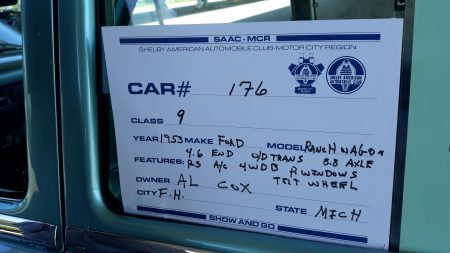 SAAC-MCR
SHELBY AMERICAN AUTOMOBILE CLUB-MOTOR CITY REGION
CAR# 176
CLASS 9
YEAR 1953 MAKE FORD MODEL RANCH WAGON
FEATURES: 4.6 END O/D TRANS 8.8 AXLE
P.S A/C 4WDB P.WINDOWS
OWNER AL COX TILT WHEEL
CITY F.H. STATE MICH
SHOW AND GO
SHELBY AMERICAN
AUTOMOBILE CLUB